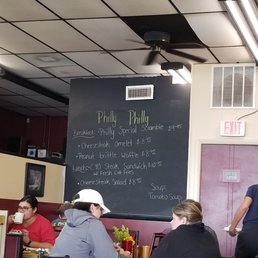 Philly Philly
Breakfast: Philly Special Scramble
• Cheesesteak Omelet $8.95
• Peanut brittle Waffle $8.
Lunch: Steak Sandwich $10.95
w/ Fresh Cut Fries
• Cheesesteak Salad $8.95
Soup:
Tomato Soup
EXIT